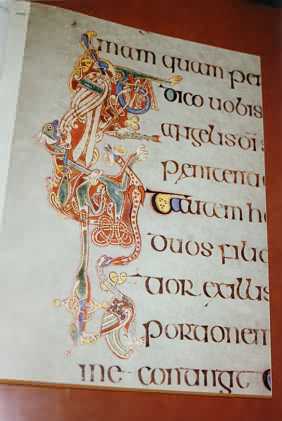 mam quam per
dico uobis
angelis di s
penitentia
autem ho
duos filio
tior ex illis
portionem
me contingit